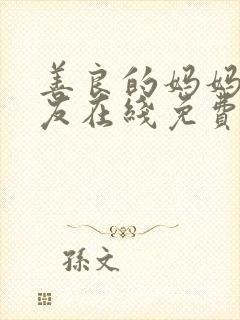 善良的妈妈
友在綫免費
孫文